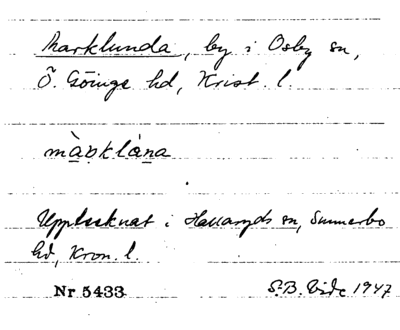 Marklunda, by i Osby sn,
Ö. Göinge hd, Krist. l.
màrklàna
Upptecknat i Hallaryds sn, Sunnerbo
hd, Kron. l.
Nr 5433 S.B. 1947